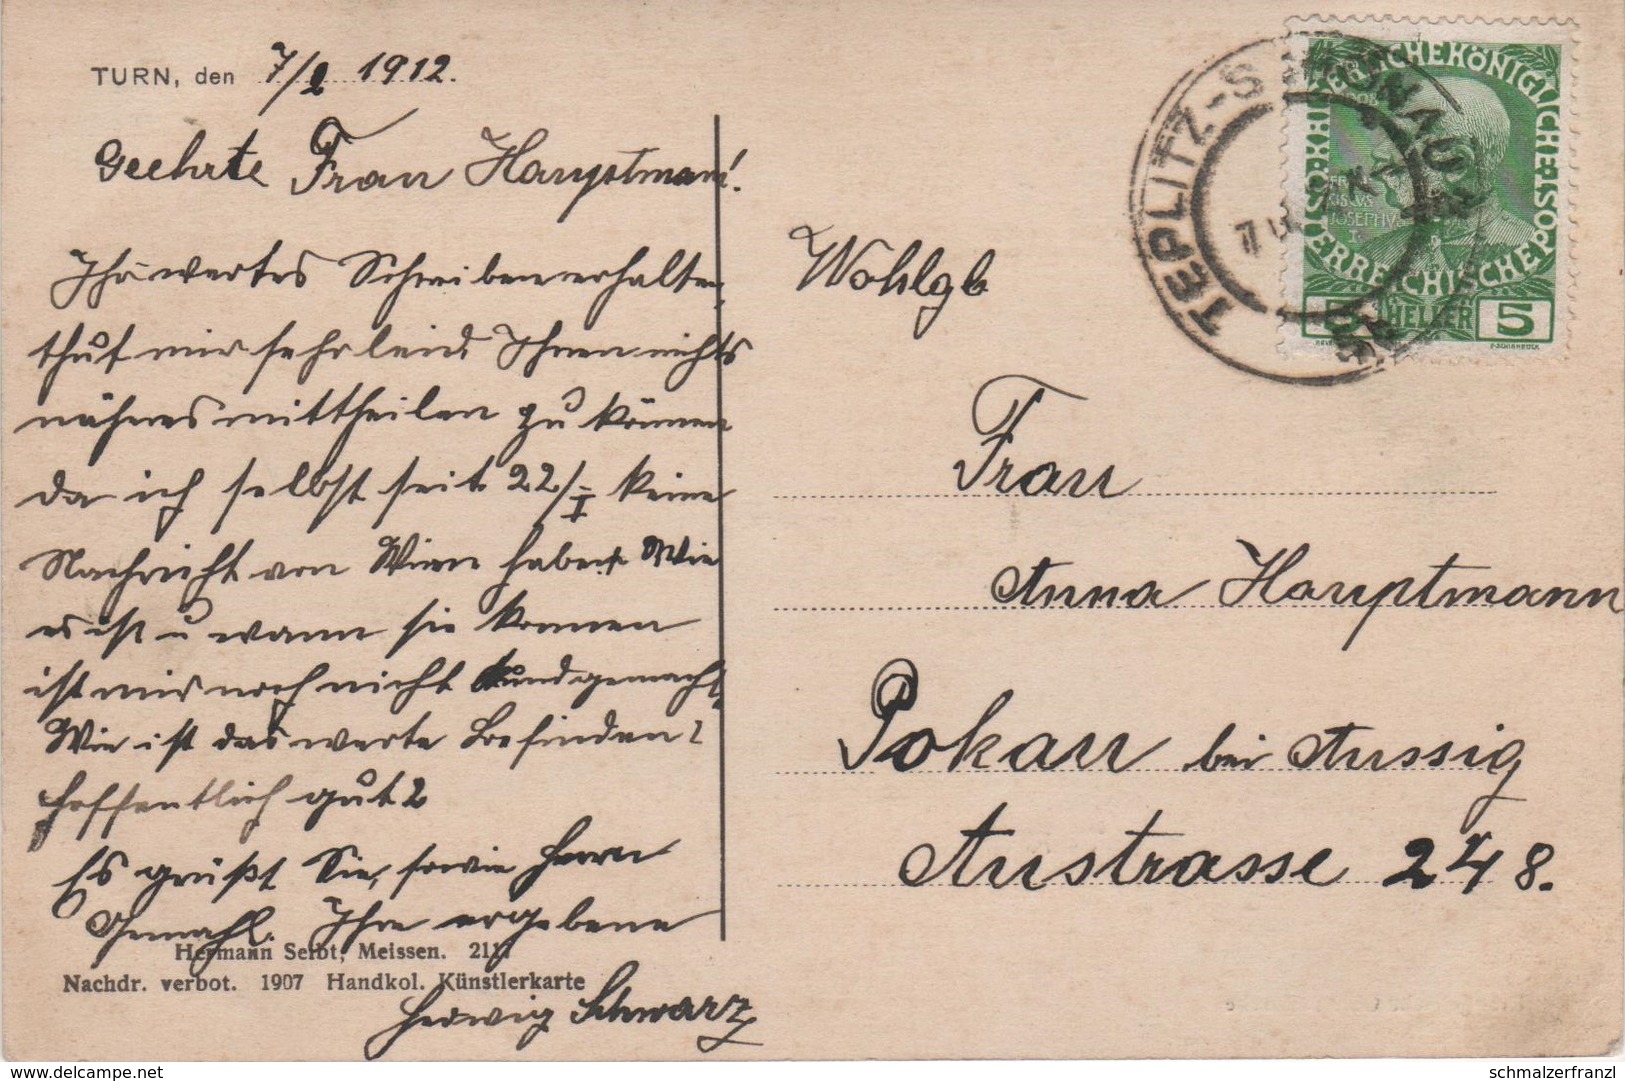 TURN, den 7/2 1912.
Geehrte Frau Hauptmann!
Ihr wertes Schreiben erhalten,
thut mir sehr leid Ihnen nichts
näheres mittheilen zu können
da ich selbst seit 22/I keine
Nachricht von Wien habe. Wie
es ist u wann sie kommen
ist mir noch nicht kundgemacht.
Wie ist das werte Befinden?
hoffentlich gut?
Es grüßt Sie, sowie Herrn
Gemahl. Ihre ergebene
Hermann Seibt, Meissen. 211
Nachdr. verbot. 1907 Handkol. Künstlerkarte
Hedwig Schwarz
Wohlgb
Frau
Anna Hauptmann
Pokau bei Aussig
Austrasse 248.
TEPLITZ-SCHÖNAU
KAISERLICHE KÖNIGLICHE ÖSTERREICHISCHE POST
5 HELLER 5
delcampe.net
schmalzerfranzl